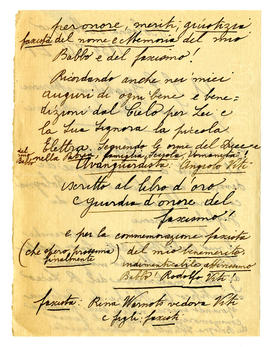 per onore, meriti, giustizia
fascista del nome e Memoria del mio
Babbo e del fascismo!
Ricordando anche nei miei
auguri di ogni bene e bene-
dizioni dal Cielo per Lei e
la Sua Signora la piccola
Elettra. Seguendo le orme del
nella Patria, famiglia, Scuola, Umanità!
Avanguardista: Angiolo Viti
iscritto al libro d'oro
e Guardia d'onore del
fascismo!
e per la commemorazione fascista
(che spero, prossima del mio benemerito
finalmente)
Babbo: Rodolfo Viti!
fascista: Rina vedova Viti
e figli fascisti.